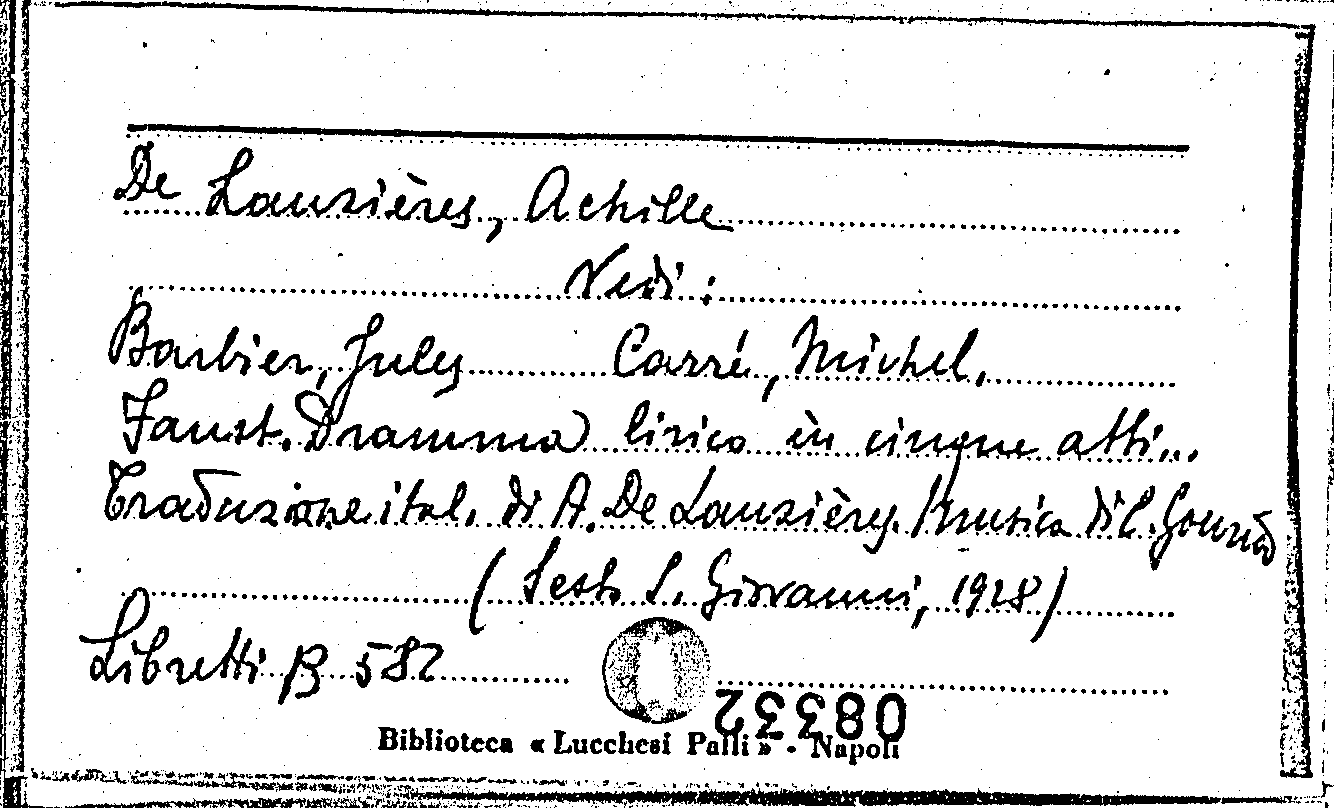 De Lauzières, Achille
Vedi:
Barbier, Jules Carré, Michel.
Faust. Dramma lirico in cinque atti...
Traduzione ital. di A. De Lauzières. Musica di C. Gounod
(Sesto S. Giovanni, 1928)
Libretti B 582
08332
Biblioteca « Lucchesi Palli » - Napoli